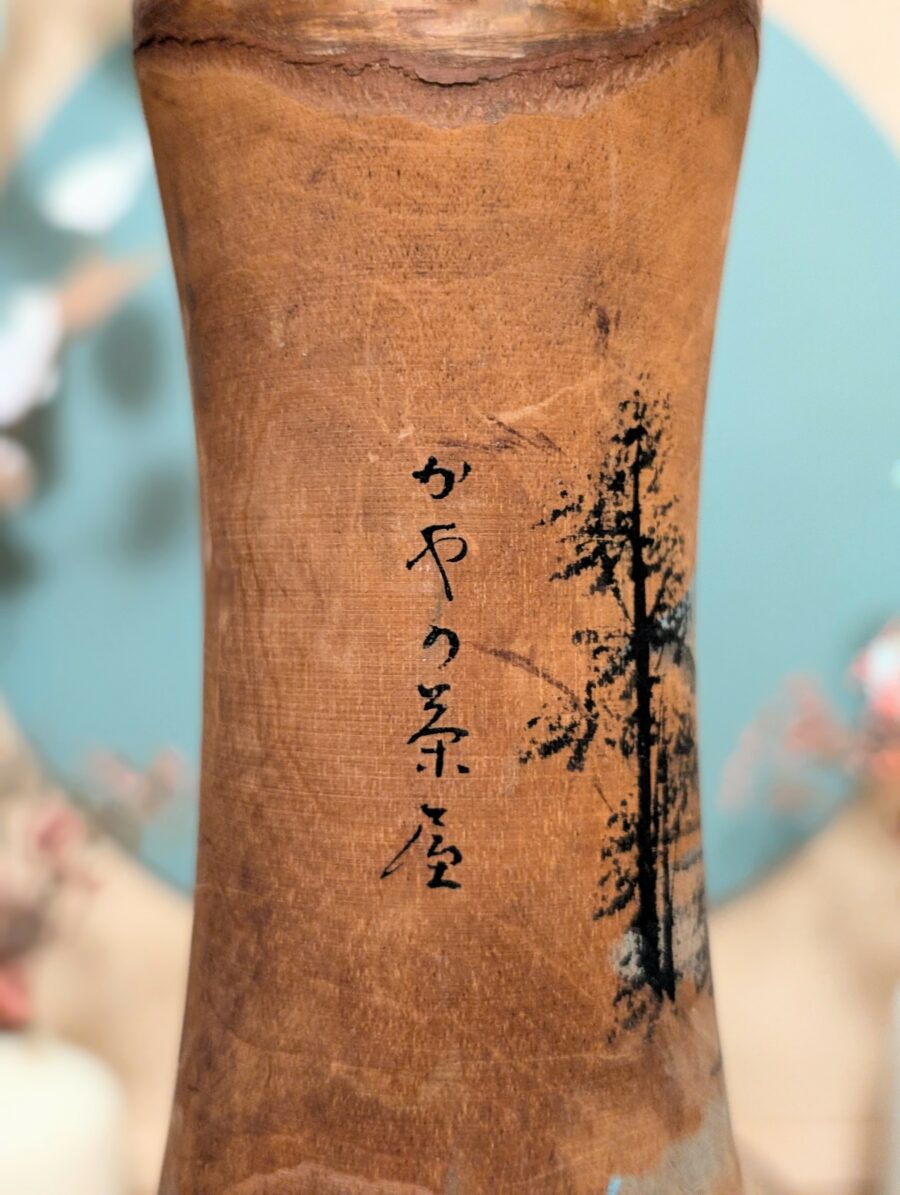 かやの茶屋